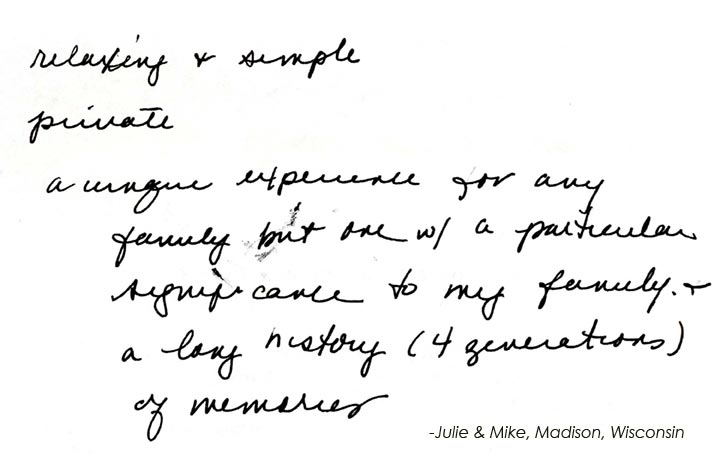 relaxing & simple
private
a unique experience for any
family but one w/ a particular
significance to my family. &
a long history (4 generations)
of memories
-Julie & Mike, Madison, Wisconsin